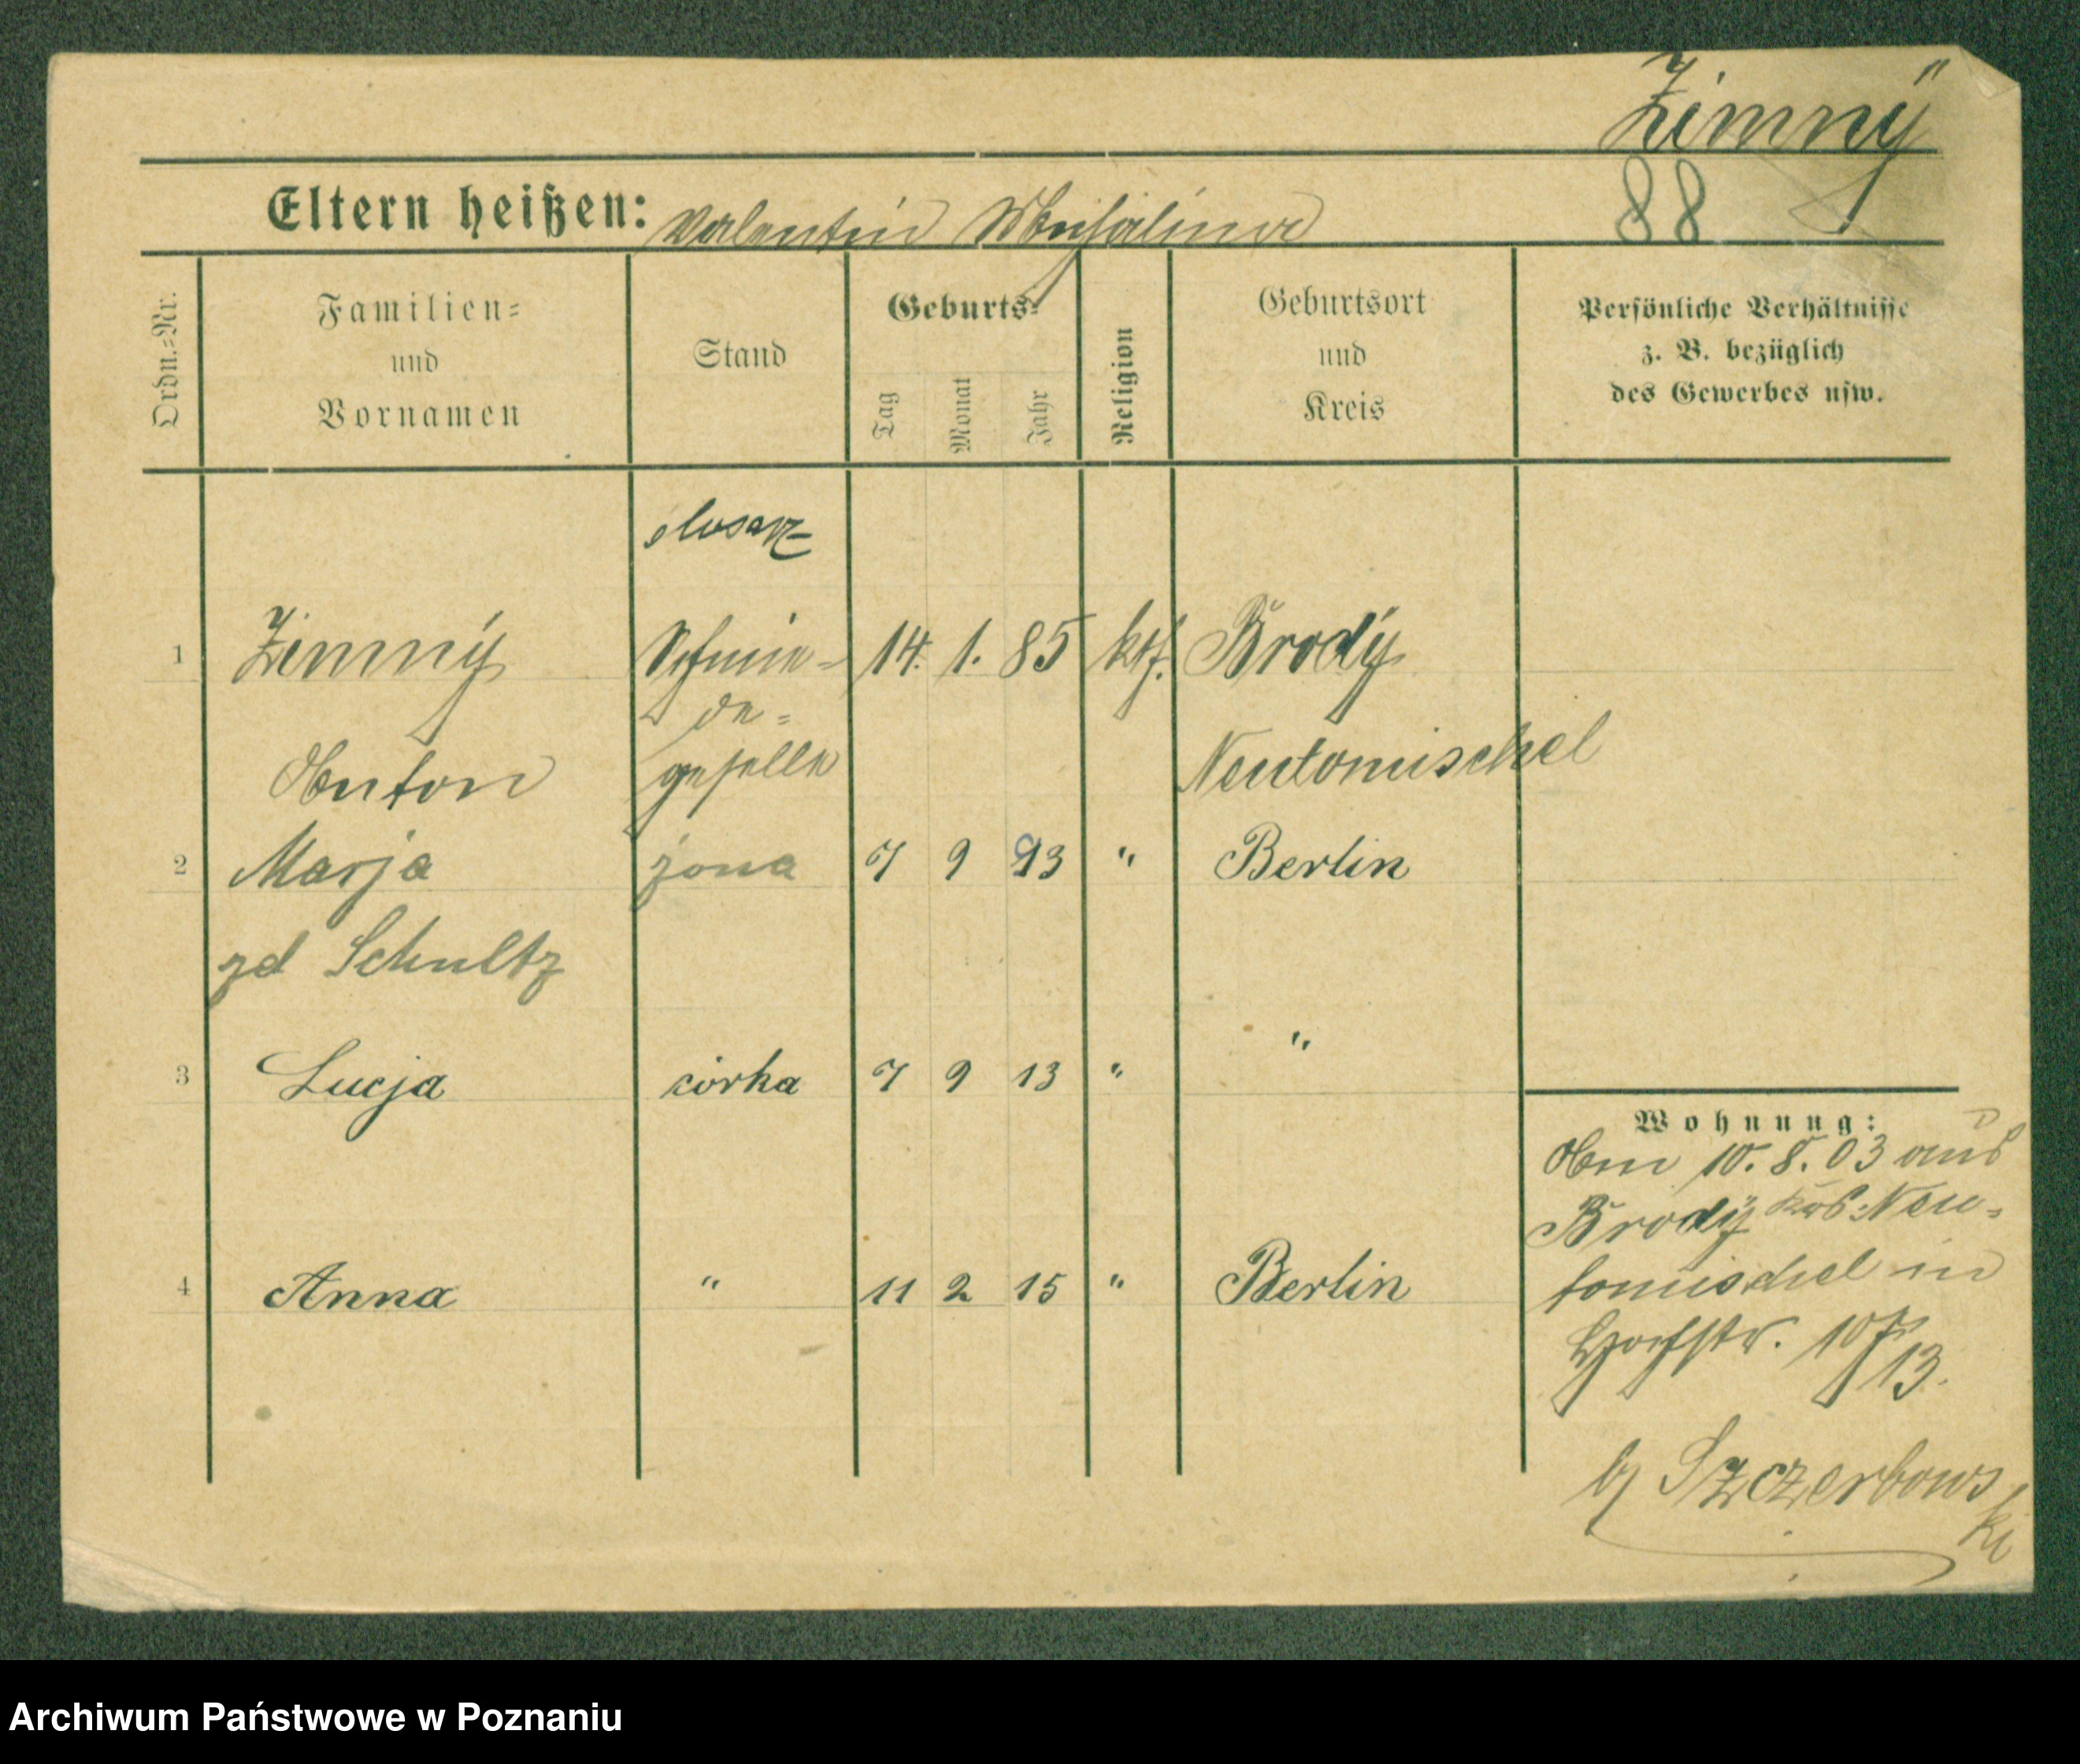 Zimny
88
Eltern heißen: Valentin Michalina
Ordn.-Nr.
Familien-
und
Vornamen
Stand
Geburts-
Tag
Monat
Jahr
Religion
Geburtsort
und
Kreis
Persönliche Verhältnisse
z. B. bezüglich
des Gewerbes usw.
ślusarz
1 Zimny Schmie- 14. 1. 85 kth. Brody
de-
Anton geselle Neutomischel
2 Marja żona 7 9 93 " Berlin
zd Schultz
3 Lucja córka 7 9 13 " "
4 Anna " 11 2 15 " Berlin
Wohnung:
Am 10. 8. 03 aus
Brody Krs. Neu-
tomischel in
13.
b/ Szczerbows
ki
Archiwum Państwowe w Poznaniu